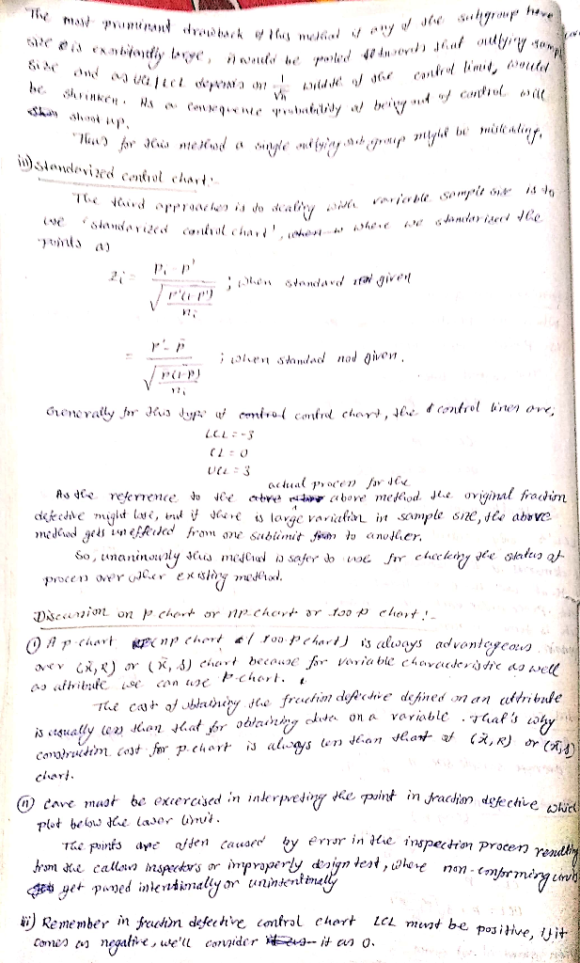 The most prominant drawback of this method if any of the subgroup have
size is exorbitantly large, it would be pooled towards that outlying sample
size and as UCL/LCL depends on 1/√n width of the control limit, would
be shrinken. As a consequence probability of being out of control will
shoot up.
Thus for this method a single outlying subgroup might be misleading.
iii) Standarized control chart:-
The third approaches is to dealing with variable sample size is to
use 'standarized control chart', where we standarized the
points as
Zi = (Pi - P') / √(P'(1-P')/ni) ; when standard given
= (P' - p̄) / √(P(1-P)/ni) ; when standad not given.
Generally for this type of control chart, the control lines are;
LCL = -3
CL = 0
UCL = 3
actual process for the
As the referrence to the above method the original fraction
defective might lose, but if there is large variation in sample size, the above
method gets uneffected from one sublimit to another.
So, unaninously this method is safer to use for checking the status of
process over other existing method.
Discussion on p chart or np chart or 100 p chart:-
① A p-chart (np chart / 100-p chart) is always advantageous
over (x̄, R) or (x̄, s) chart because for variable characteristic as well
as attribute we can use p-chart.
The cost of obtaining the fraction defective defined on an attribute
is usually less than that for obtaining data on a variable. That's why
construction cost for p-chart is always less than that of (x̄, R) or (x̄, s)
chart.
② Care must be excercised in interpreting the point in fraction defective which
plot below the lower limit.
The points are often caused by error in the inspection process resulting
from the callous inspectors or improperly design test, where non-conforming units
get passed intentionally or unintentionally
iii) Remember in fraction defective control chart LCL must be positive, if it
comes as negative, we'll consider it as 0.